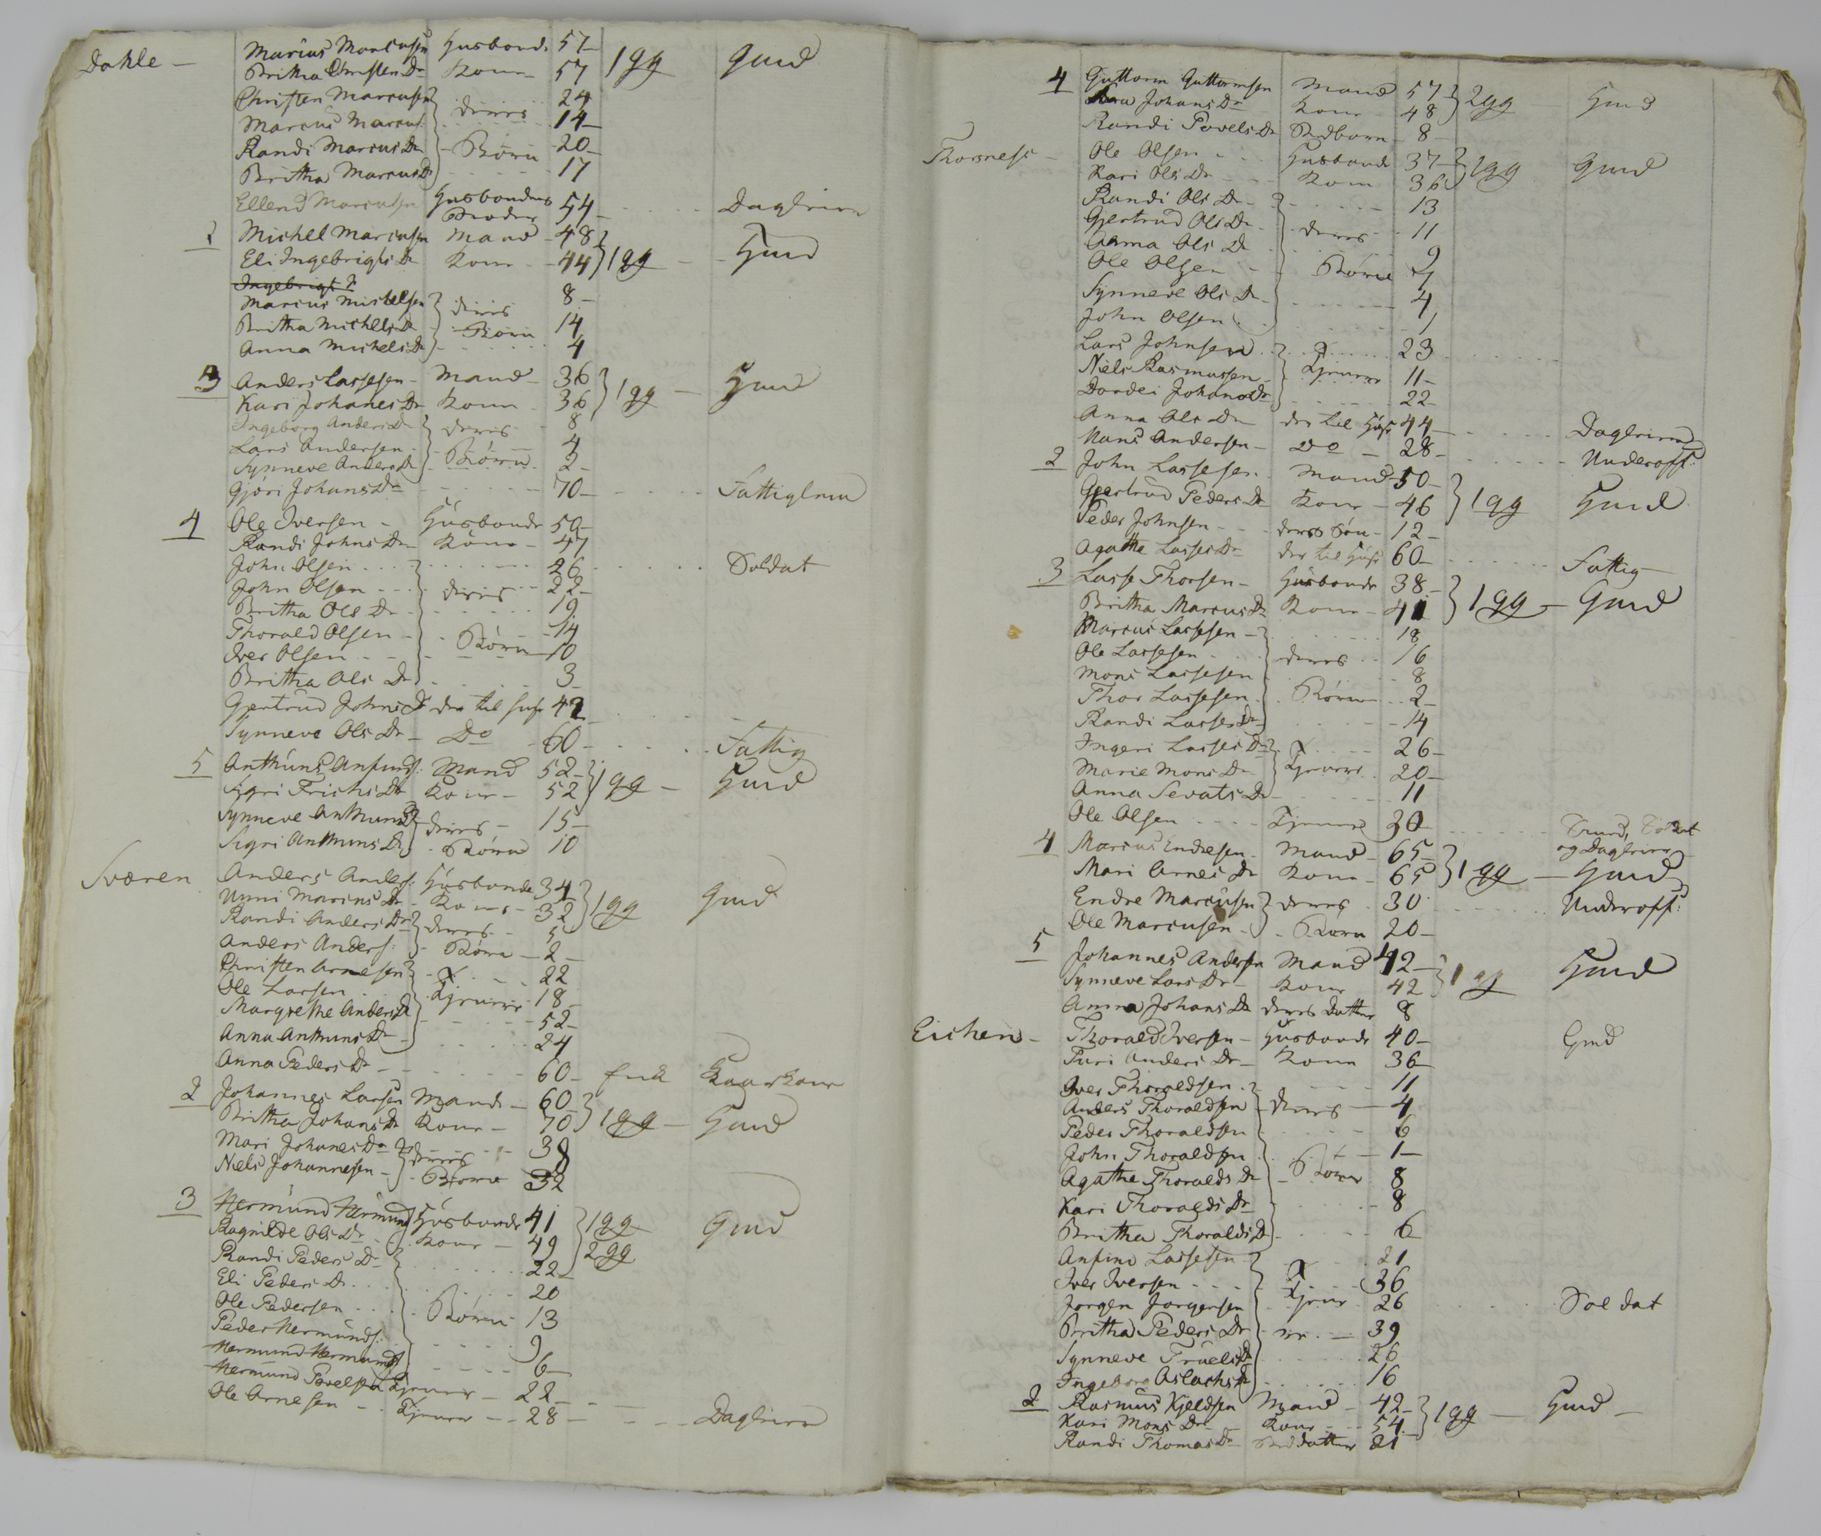 Dahle — Marius Marcusen Husbond 57 — 1 gg Gmd
Britha Christen Dr Kone — 57
Christen Marcusen 24
Marcus Marcus: deres 14 —
Randi Marcus Dr Børn 20 —
Britha Marcus Dr 17
Ellend Marcusen Husbondes Broder 54 — Daglein
2 Michel Marcusen Mand — 48 1 gg — Hmd
Eli Ingebrigts Dr Kone — 44
Ingebrigt
Marcus Michelsen deres 8 —
Britha Michels Dr Børn 14
Anna Michels Dr 4
3 Anders Lassesen — Mand — 36 1 gg — Hmd
Kari Johanes Dr Kone — 36
Ingeborg Anders Dr deres 8
Lars Andersen Børn 4
Synneve Anders Dr 2 —
Gjøri Johans Dr 70 — Fattiglem
4 Ole Iversen — Husbonde 50 —
Randi Johns Dr Kone — 47
John Olsen 26 Soldat
John Olsen deres 22 —
Britha Ols Dr 19
Thorald Olsen — Børn 14
Iver Olsen 10
Britha Ols Dr 3
Gjertrud Johns Dr der til huse 42
Synneve Ols Dr — Do 60 — Fattig
5 Anthuns Anfinds: Mand 52 — 1 gg — Hmd
Sygri Frichs Dr Kone — 52
Synneve Anthuns Dr deres — 15 —
Sigri Anthuns Dr Børn 10
Sværen Anders Anders: Husbonde 34 1 gg Gmd
Unni Marcus Dr Kone — 32
Randi Anders Dr deres — 5
Anders Anders: Børn — 2 —
Christen Arnesen 22
Ole Larsen Tjenere 18 —
Margrethe Anders Dr 52 —
Anna Anthuns Dr 24
Anna Peders Dr — 60 — Enk Kaarkone
2 Johannes Larsen Mand — 60 1 gg — Hmd
Britha Johans Dr Kone — 70
Mari Johanes Dr deres 38
Niels Johannesen — Børn 32
3 Hermund Hermund Husbonde 41 1 gg Gmd
Ragnilde Ols Dr Kone — 49 2 gg
Randi Peders Dr 22 —
Eli Peders Dr 20
Ole Pedersen Børn 13
Peder Hermunds: 9
Hermund Hermunds 6 —
Hermund Povelsen Tjener — 22 —
Ole Arnesen — Tjener — 28 — Daglein
4 Guttorm Guttormsen Mand 57 2 gg — Hmd
Johans Dr Kone 48
Randi Povels Dr Stedbarn — 8 —
Thorsness — Ole Olsen Husbonde 37 — 1 gg Gmd
Kari Ols Dr Kone 36
Randi Ols Dr 13
Gjertrud Ols Dr deres 11
Anna Ols Dr 9
Ole Olsen Børn 7
Synneve Ols Dr 4
John Olsen 1
Lars Johnsen 23
Niels Rasmussen Tjenere 11 —
Dordei Johans Dr 22
Anna Ols Dr der til Huse 44 — Daglein
Hans Andersen — Do — 28 — Underoff:
2 John Lassesen Mand 50 — 1 gg Hmd
Gjertrud Peders Dr Kone — 46
Peder Johnsen deres Søn — 12 —
Agathe Lasses Dr der til Huse 60 — Fattig
3 Lasse Thorsen — Husbonde 38 — 1 gg — Gmd
Britha Marcus Dr Kone — 41
Marcus Lassesen — 18
Ole Lassesen deres 16
Mons Lassesen 8
Thor Lassesen Børn 2 —
Randi Lasses Dr 14
Ingeri Lasses Dr 26 —
Marie Mons Dr Tjenere 20 —
Anna Sevats Dr 11
Ole Olsen Tjener 30
og Daglein
4 Marcus Endresen — Mand — 65 — 1 gg — Hmd
Mari Arnes Dr Kone — 65
Endre Marcusen deres 30 Underoff:
Ole Marcusen Børn 20 —
5 Johannes Andersen Mand 42 — 1 gg Hmd
Synneve Lars Dr — Kone 42
Anna Johans Dr deres Datter 8
Eichen — Thorald Iversen — Husbonde 40 — Gmd
Turi Anders Dr — Kone 36 —
Iver Thoraldsen 11
Anders Thoraldsen deres 4
Peder Thoraldsen 6
John Thoraldsen 1 —
Agathe Thoralds Dr Børn 8
Kari Thoralds Dr 8
Britha Thoralds Dr 6
Anfind Lassesen 21
Iver Iversen 36
Jørgen Jørgensen Tjene 26 Soldat
Britha Peders Dr re — 39
Synneve Truels Dr 26
Ingeborg Aslachs Dr 16
2 Rasmus Kjeldsen Mand — 42 — 1 gg — Hmd —
Kari Mons Dr Kone 54
Randi Thomas Dr Stedatter 21